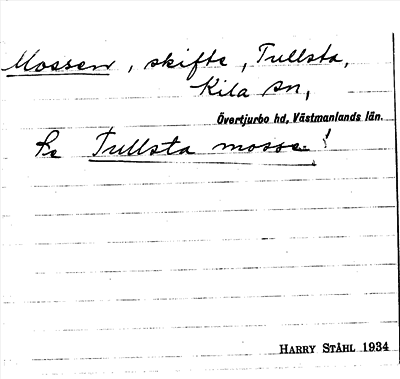 Mossen, skifte, Tullsta,
Kila sn,
Övertjurbo hd, Västmanlands län.
Se Tullsta mosse!
HARRY STÅHL 1934